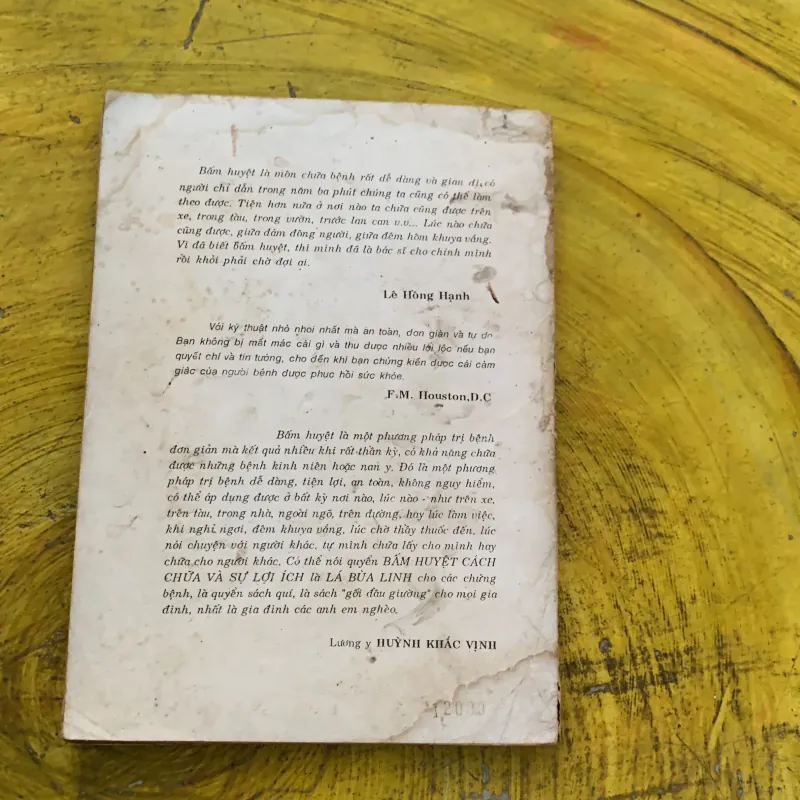 Bấm huyệt là môn chữa bệnh rất dễ dàng và giản dị, có
người chỉ dẫn trong năm ba phút chúng ta cũng có thể làm
theo được. Tiện hơn nữa ở nơi nào ta chữa cũng được trên
xe, trong tàu, trong vườn, trước lan can v.v... Lúc nào chữa
cũng được, giữa đám đông người, giữa đêm hôm khuya vắng.
Vì đã biết bấm huyệt, thì mình đã là bác sĩ cho chính mình
rồi khỏi phải chờ đợi ai.
Lê Hồng Hạnh
Với kỹ thuật nhỏ nhoi nhất mà an toàn, đơn giản và tự do
Bạn không bị mất mác cái gì và thu được nhiều lợi lộc nếu bạn
quyết chí và tin tưởng, cho đến khi bạn chứng kiến được cái cảm
giác của người bệnh được phục hồi sức khỏe.
F.M. Houston,D.C
Bấm huyệt là một phương pháp trị bệnh
đơn giản mà kết quả nhiều khi rất thần kỳ, có khả năng chữa
được những bệnh kinh niên hoặc nan y. Đó là một phương
pháp trị bệnh dễ dàng, tiện lợi, an toàn, không nguy hiểm,
có thể áp dụng được ở bất kỳ nơi nào, lúc nào - như trên xe,
trên tàu, trong nhà, ngoài ngõ, trên đường, hay lúc làm việc,
khi nghỉ ngơi, đêm khuya vắng, lúc chờ thầy thuốc đến, lúc
nói chuyện với người khác, tự mình chữa lấy cho mình hay
chữa cho người khác. Có thể nói quyển BẤM HUYỆT CÁCH
CHỮA VÀ SỰ LỢI ÍCH là LÁ BÙA LINH cho các chứng
bệnh, là quyển sách quí, là sách "gối đầu giường" cho mọi gia
đình, nhất là gia đình các anh em nghèo.
Lương y HUỲNH KHẮC VỊNH